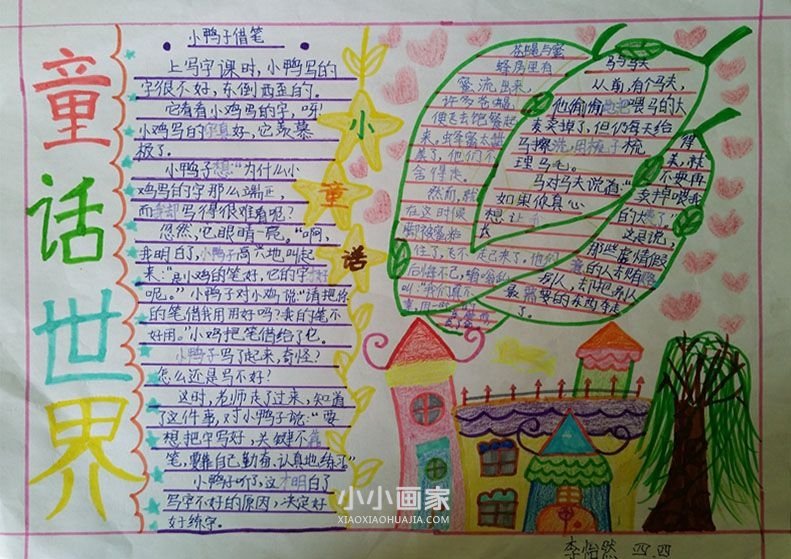 童话世界
小鸭子借笔
上写字课时，小鸭写的
字很不好，东倒西歪的。
它看看小鸡写的字，呀！
小鸡写的字真好，它羡慕
极了。
小鸭子想"为什么小
鸡写的字那么端正，
而我却写得很难看呢？
忽然，它眼睛一亮。"啊，
我明白了，小鸭子高兴地叫起
来："是小鸡的笔好，它的字才好
呢。"小鸭子对小鸡说："请把你
的笔借我用用好吗？我的笔不
好用。"小鸡把笔借给了它。
小鸭子写了起来，奇怪？
怎么还是写不好？
这时，老师走了过来，知道
了这件事，对小鸭子说："要
想把字写好，关键不靠
笔，要靠自己勤奋、认真地练习。"
小鸭子听了，这才明白了
写字不好的原因，决定好
好练字。
小
童
话
苍蝇与蜜
蜂房里有
蜜流出来，
许多苍蝇
便飞去饱餐起
来，蜂蜜太甜
美了，他们不
舍得走。
然而，就
在这时候
脚被蜜粘
住了，飞不走起来了。他们
后悔不已，嗡嗡乱
叫："我们真不
马与马夫
从前，有个马夫，
他偷偷地把喂马的大
麦卖掉了，但仍每天给
马擦洗，用梳子梳
理马毛。
马对马夫说道：
如果你真心
想让我
长得
美，就
不要再
卖掉喂我
的大麦了"
这是说，
那些虚情假
意的人去贿赂
别人，却把别人
最需要的东西夺走
了。
小小画家
XIAOXIAOHUAJIA.COM
李怡然 四.四